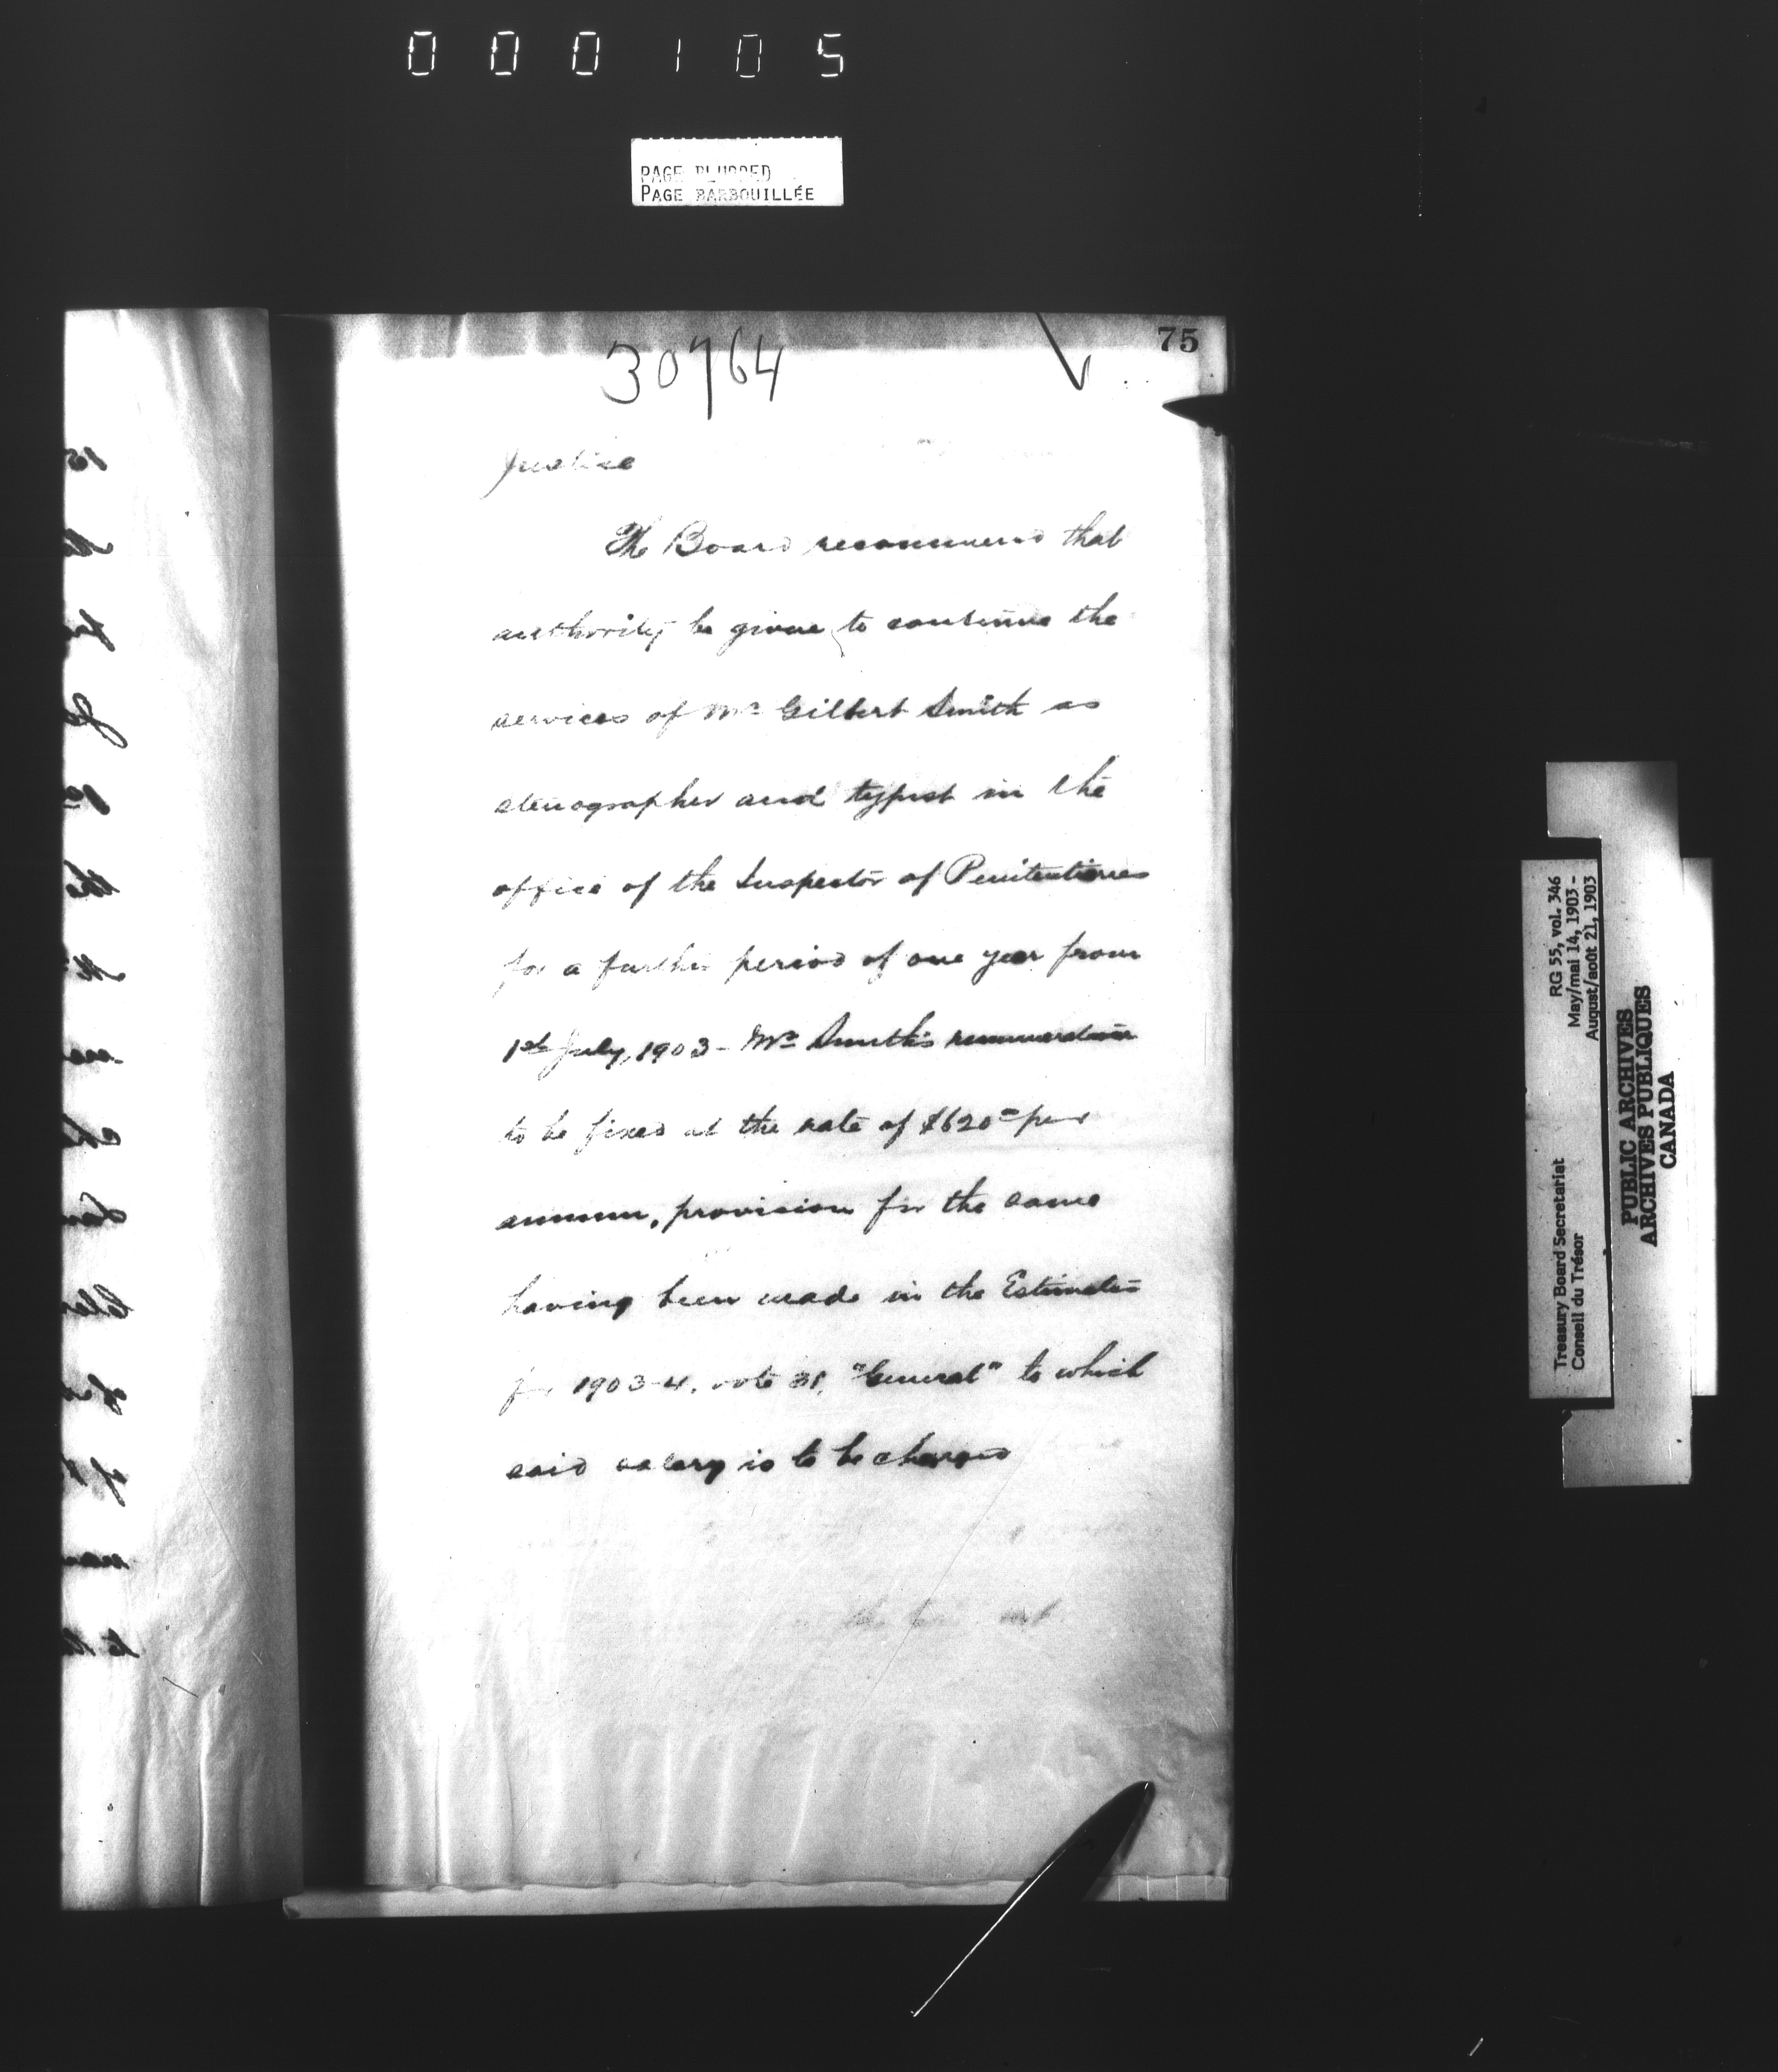 000105
PAGE BLURRED
PAGE BARBOUILLÉE
75
30764
Justice
The Board recommend that
authority be given to continue the
services of Mr Gilbert Smith as
stenographer and typist in the
office of the Inspector of Penitentiaries
for a further period of one year from
1st July, 1903 - Mr Smith's remuneration
to be fixed at the rate of $620 per
annum, provision for the same
having been made in the Estimates
for 1903-4, vote 31, "General" to which
said salary is to be charged
Treasury Board Secretariat RG 55, vol. 346
Conseil du Trésor May/mai 14, 1903 -
August/août 21, 1903
PUBLIC ARCHIVES
ARCHIVES PUBLIQUES
CANADA